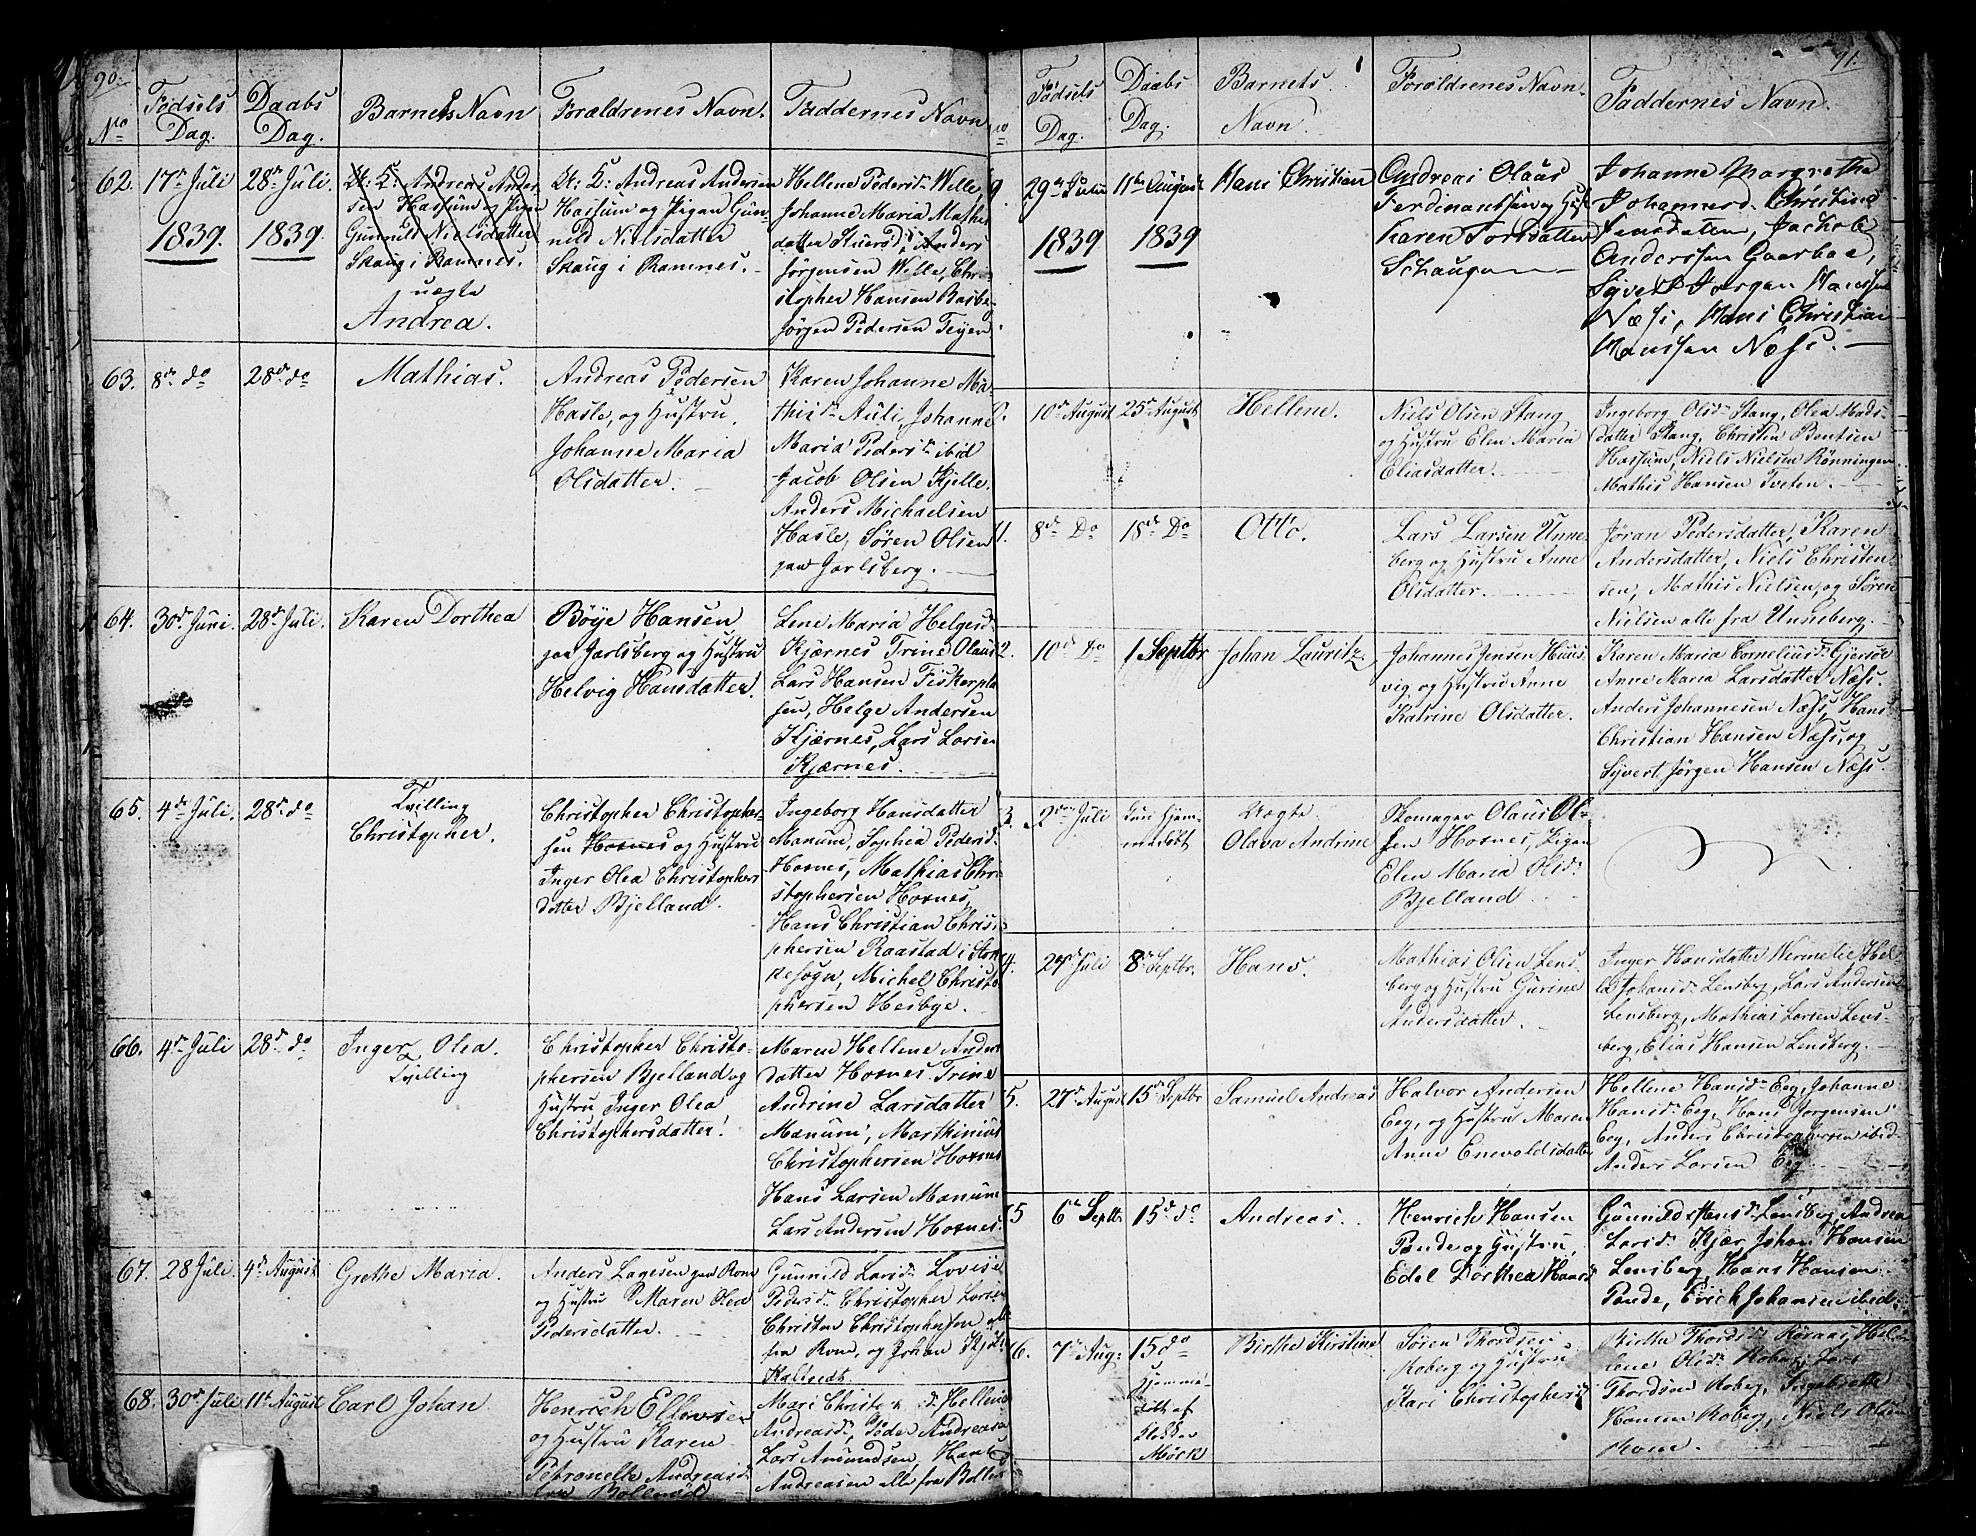 90.
No
Fødsels
Dag.
Daabs
Dag.
Barnets Navn
Forældrenes Navn.
Faddernes Navn
62.
17de Juli
1839.
28de Juli.
1839.
U: K: Andreas Ander-
sen Hassum og Pigen
Gunnild Nielsdatter
Skaug i Ramnes.
uægte
Andrea.
U: K: Andreas Andersen
Hassum og Pigen Gun-
nild Nielsdatter
Skaug i Ramnes.
Hellene Pedersd: Welle,
Johanne Maria Mathi
datter Anders
Jørgensen Welle, Chri-
stopher Hansen
Jørgen Pedersen Teyen
63.
8de do
28de do
Mathias.
Andreas Pedersen
Hasle, og Hustru
Johanne Maria
Olsdatter.
Karen Johanne Ma-
this d: Auli, Johanne
Maria Peders d: ibid
Jacob Olsen Kjelle,
Anders Michaelsen
Hasle, Søren Olsen
paa Jarlsberg.
64.
30de Juni.
28de Juli.
Karen Dorthea
Böye Hansen
paa Jarlsberg og Hustru
Helvig Hansdatter.
Lene Maria Helgesd:
Kjærnes, Trine Olaus
Lars Hansen Fiskerpla
sen, Helge Andersen
Kjærnes, Lars Larsen
Kjærnes.
65.
4de Juli.
28de do
Tvilling
Christopher.
Christopher Christopher-
sen Hosnes og Hustru
Inger Olea Christophers
datter Bjelland.
Ingeborg Hansdatter
Manum, Sophia Peders d:
Hosnes, Mathias Chri-
stophersen Hosnes,
Hans Christian Christo-
phersen Raastad i Stok-
kesogn, Michel Christo
phersen Hesbye.
66.
4de Juli
28de do
Inger Olea.
Tvilling
Christopher Christo-
phersen Bjelland og
Hustru Inger Olea
Christophersdatter.
Maren Hellene Anders
datter Hosnes, Trine
Andrine Larsdatter
Manum, Marthinius
Christophersen Hosnes
Hans Larsen Manum
Lars Andersen Hosnes.
67.
28 Juli.
4de August
Grethe Maria.
Anders Lagesen paa Rom
og Hustru Maren Olea
Pedersdatter.
Gunnild Larsd: Lovise
Pedersd: Christopher Larsen
Christen Christophersen alle
fra Rom, og Johan
68.
30de Juli
11te August
Carl Johan
Henrich Ellevsen
og Hustru Karen
Petronelle Andreasd:
fra Bollerød
Mari d: Hellene
Andreasd:, Peder Andreasen
Lars Amundsen, Hans
Andreasen alle fra Boller
91.
Fødsels
Dag.
Daabs
Dag.
Barnets
Navn.
Forældrenes Navn.
Faddernes Navn.
9.
29de Julii
1839
11te August
1839
Hans Christian
Andreas Olaus
Ferdinantsen og Hust
Karen Torsdatter
Schaugen
Johanne Margrethe
Johannesd. Christine
Jensdatter, Jachob
Anderssen Gaarboe,
Syvert Jørgen Hanssen
Næss, Hans Christian
Hanssen Næss.
10de August
25de August
Hellene.
Niels Olsen Stang
og Hustru Elen Maria
Eliasdatter.
Ingeborg Olsd: Stang, Olea Mads-
datter Stang, Christen Bentsen
Hassum, Niels Nielsen Rönningen
Mathis Hansen Tveten.
1.
8de Do
18de Do
Otto.
Lars Larsen Unne-
berg og Hustru Anne
Olsdatter.
Jøran Pedersdatter, Karen
Andersdatter, Niels Christen-
sen, Mathis Nielsen, og Søren
Nielsen alle fra Unneberg.
2.
10de Do
1 Septbr
Johan Lauritz.
Johannes Jensen Huus-
vig, og Hustru Anne
Katrine Olsdatter.
Karen Maria Corneliusd: Gjersøe
Anne Maria Larsdatter Næss.
Anders Johannesen Næss, Hans
Christian Hansen Næss, og
Syvert Jørgen Hansen Næss.
3.
2den Juli
Juni hjem-
medøbt
Uægte
Olava Andrine
Skomager Olaus Ol-
sen Hosnes, Pigen
Elen Maria Olsd:
Bjelland
4.
29de Juli
8de Septbr.
Hans.
Mathias Olsen Lens-
berg og Hustru Gurine
Andersdatter.
Inger Hansdatter Wermelie, Hel
Johansd: Lensberg, Lars Andersen
Lensberg, Mathias Larsen Lens-
berg, Elias Hansen Lensberg.
5.
27de August
15de Septbr
Samuel Andreas
Halvor Andersen
Eeg, og Hustru Maren
Anne Enevoldsdatter
Hellene Hansd: Eeg, Johanne
Hansd: Eeg, Hans Jørgensen
Eeg, Anders Christophersen ibid
Anders Larsen Eeg.
75
6te Septbr
15de do
Andreas.
Henrich Hansen
Pande og Hustru
Edel Dorthea Hansd
Gunnild Stensd: Lensberg, Andrea
Larsd: Kjær, Johan Hansen
Lensberg, Hans Hansen
Pande, Erich Johansen ibid:
76.
7de Aug:
15 do
hjemme-
døbt af
Klokker
Mørch
Birthe Kirstine
Søren Thordsen
Roberg og Hustru
Kari Christophersd
Birthe Thordsd: Røraas, Hel-
lene Olsd: Roberg, Lars
Thordsen Roberg, Ingebreth
Hansen Roberg, Niels Olsen
Rom.